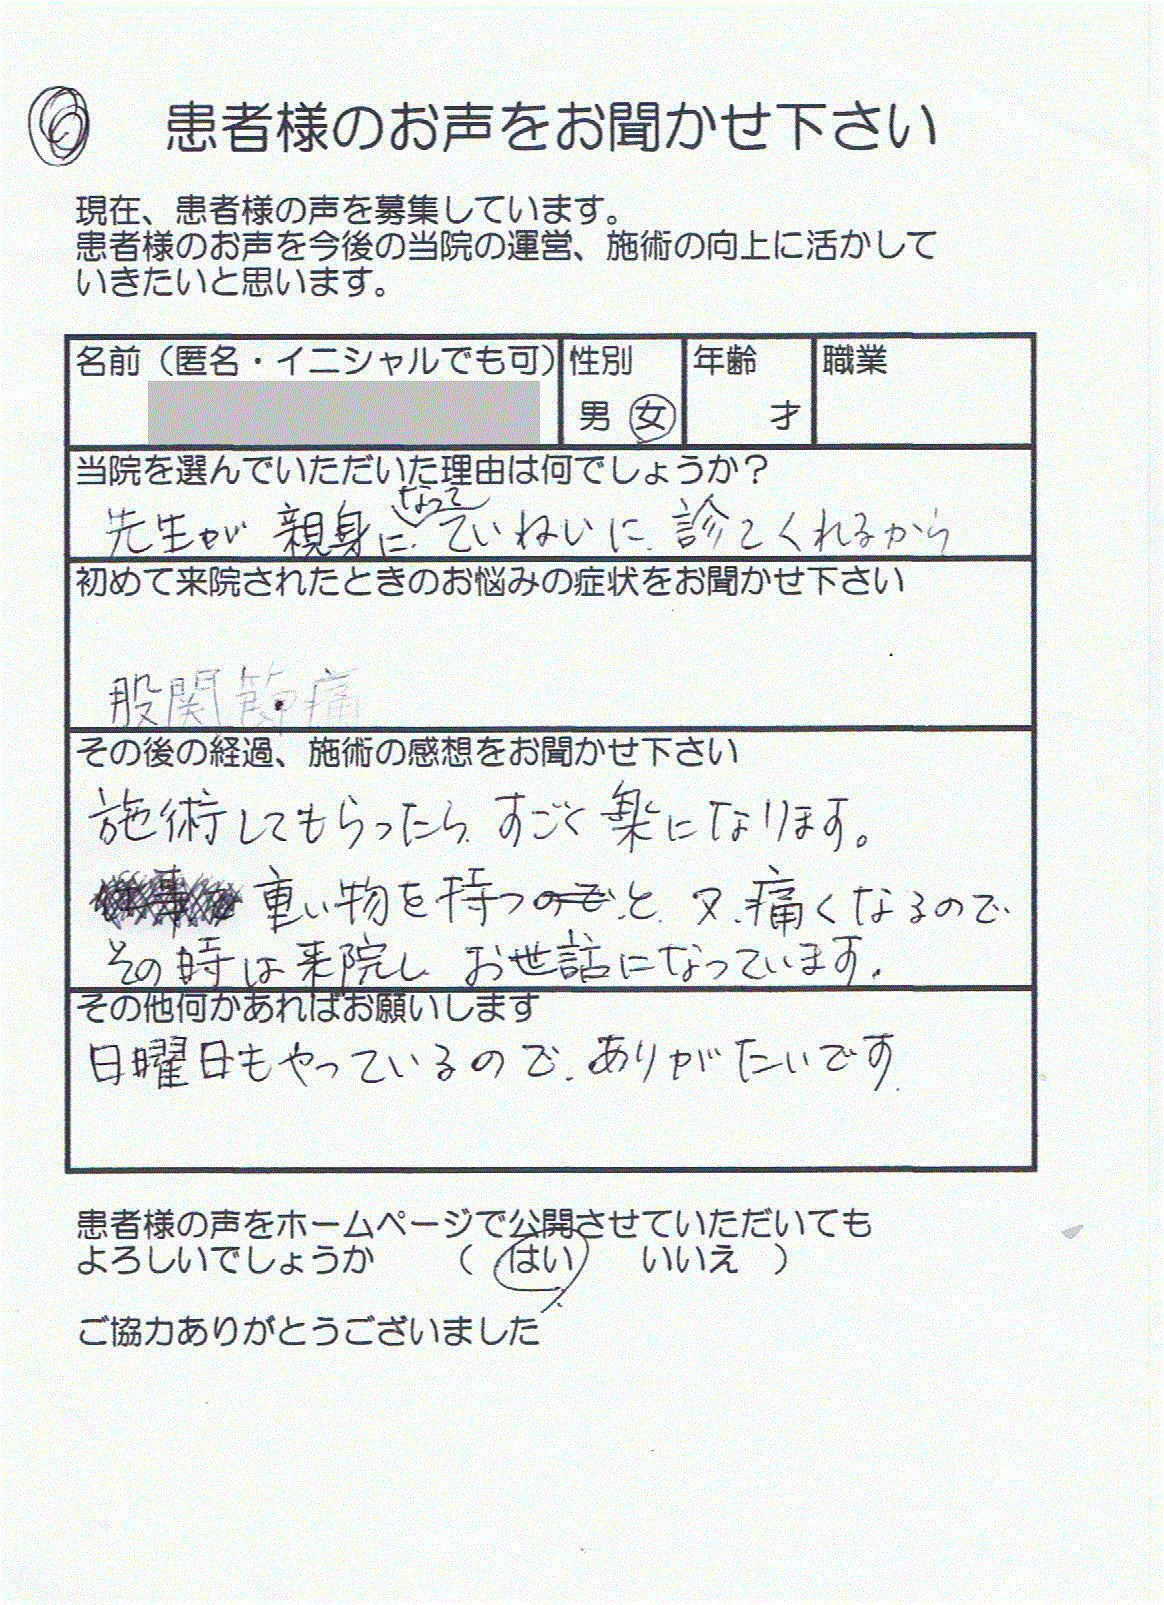 患者様のお声をお聞かせ下さい
現在、患者様の声を募集しています。
患者様のお声を今後の当院の運営、施術の向上に活かして
いきたいと思います。
名前（匿名・イニシャルでも可） 性別 年齢 職業
男 女 才
当院を選んでいただいた理由は何でしょうか？
先生が 親身になって ていねいに 診てくれるから
初めて来院されたときのお悩みの症状をお聞かせ下さい
股関節痛
その後の経過、施術の感想をお聞かせ下さい
施術してもらったら すごく 楽になります。
重い物を持つのでと、又、痛くなるので
その時は来院し お世話になっています。
その他何かあればお願いします
日曜日もやっているので、ありがたいです。
患者様の声をホームページで公開させていただいても
よろしいでしょうか （ はい いいえ ）
ご協力ありがとうございました